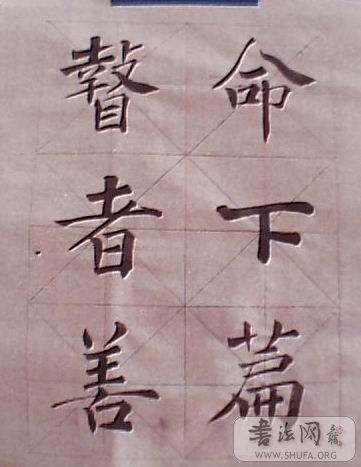 命下篇
瞽者善
书法网
WWW.SHUFA.ORG